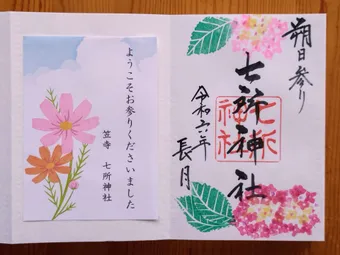 朔日参り
七所神社
七所神社
令和六年
長月
ようこそお参りくださいました
笠寺 七所神社